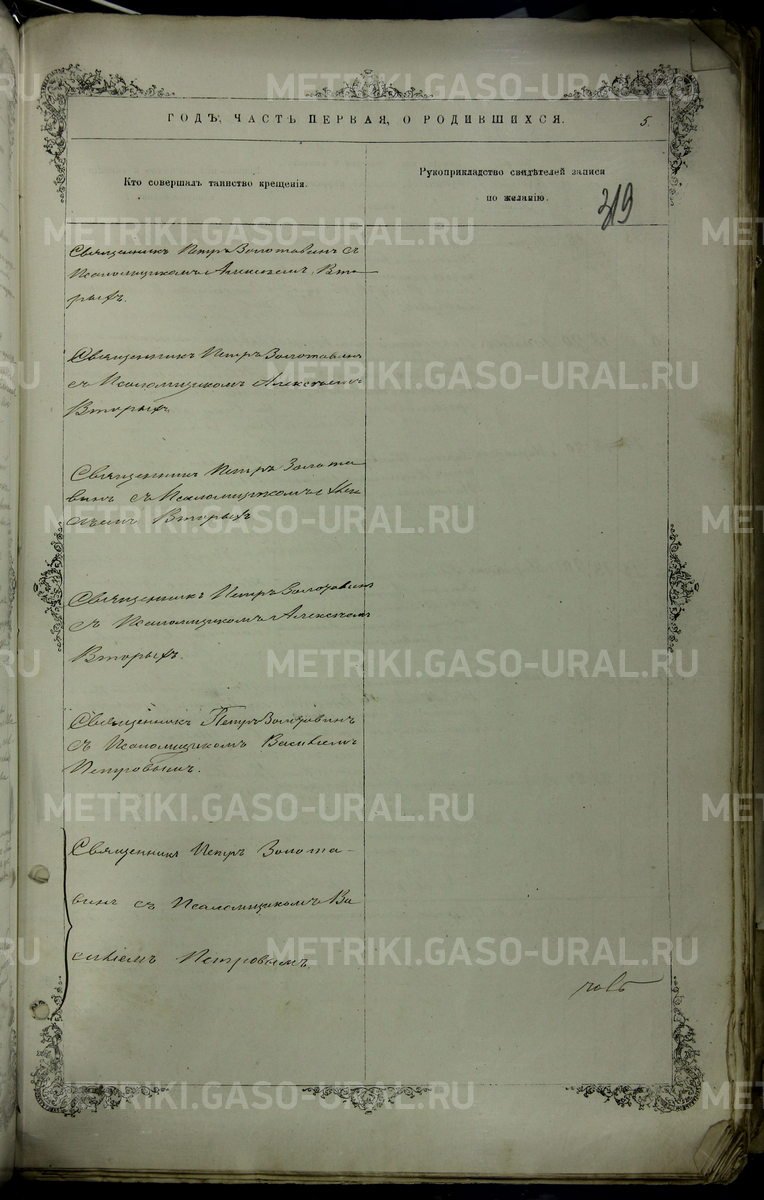 ГОДЪ, ЧАСТЬ ПЕРВАЯ, О РОДИВШИХСЯ.
5.
Кто совершалъ таинство крещенія.
Рукоприкладство свидѣтелей записи
по желанію.
319
Священникъ Петръ Золотавинъ съ
Псаломщикомъ Алексѣемъ Вто-
рыхъ.
Священникъ Петръ Золотавинъ
съ Псаломщикомъ Алексѣемъ
Вторыхъ
Священникъ Петръ Золота
винъ съ Псаломщикомъ Алек
сѣемъ Вторыхъ
Священникъ Петръ Золотавинъ
съ Псаломщикомъ Алексѣемъ
Вторыхъ.
Священникъ Петръ Золотавинъ
съ Псаломщикомъ Василіемъ
Петровымъ.
Священникъ Петръ Золота-
винъ съ Псаломщикомъ Ва
силіемъ Петровымъ.
METRIKI.GASO-URAL.RU